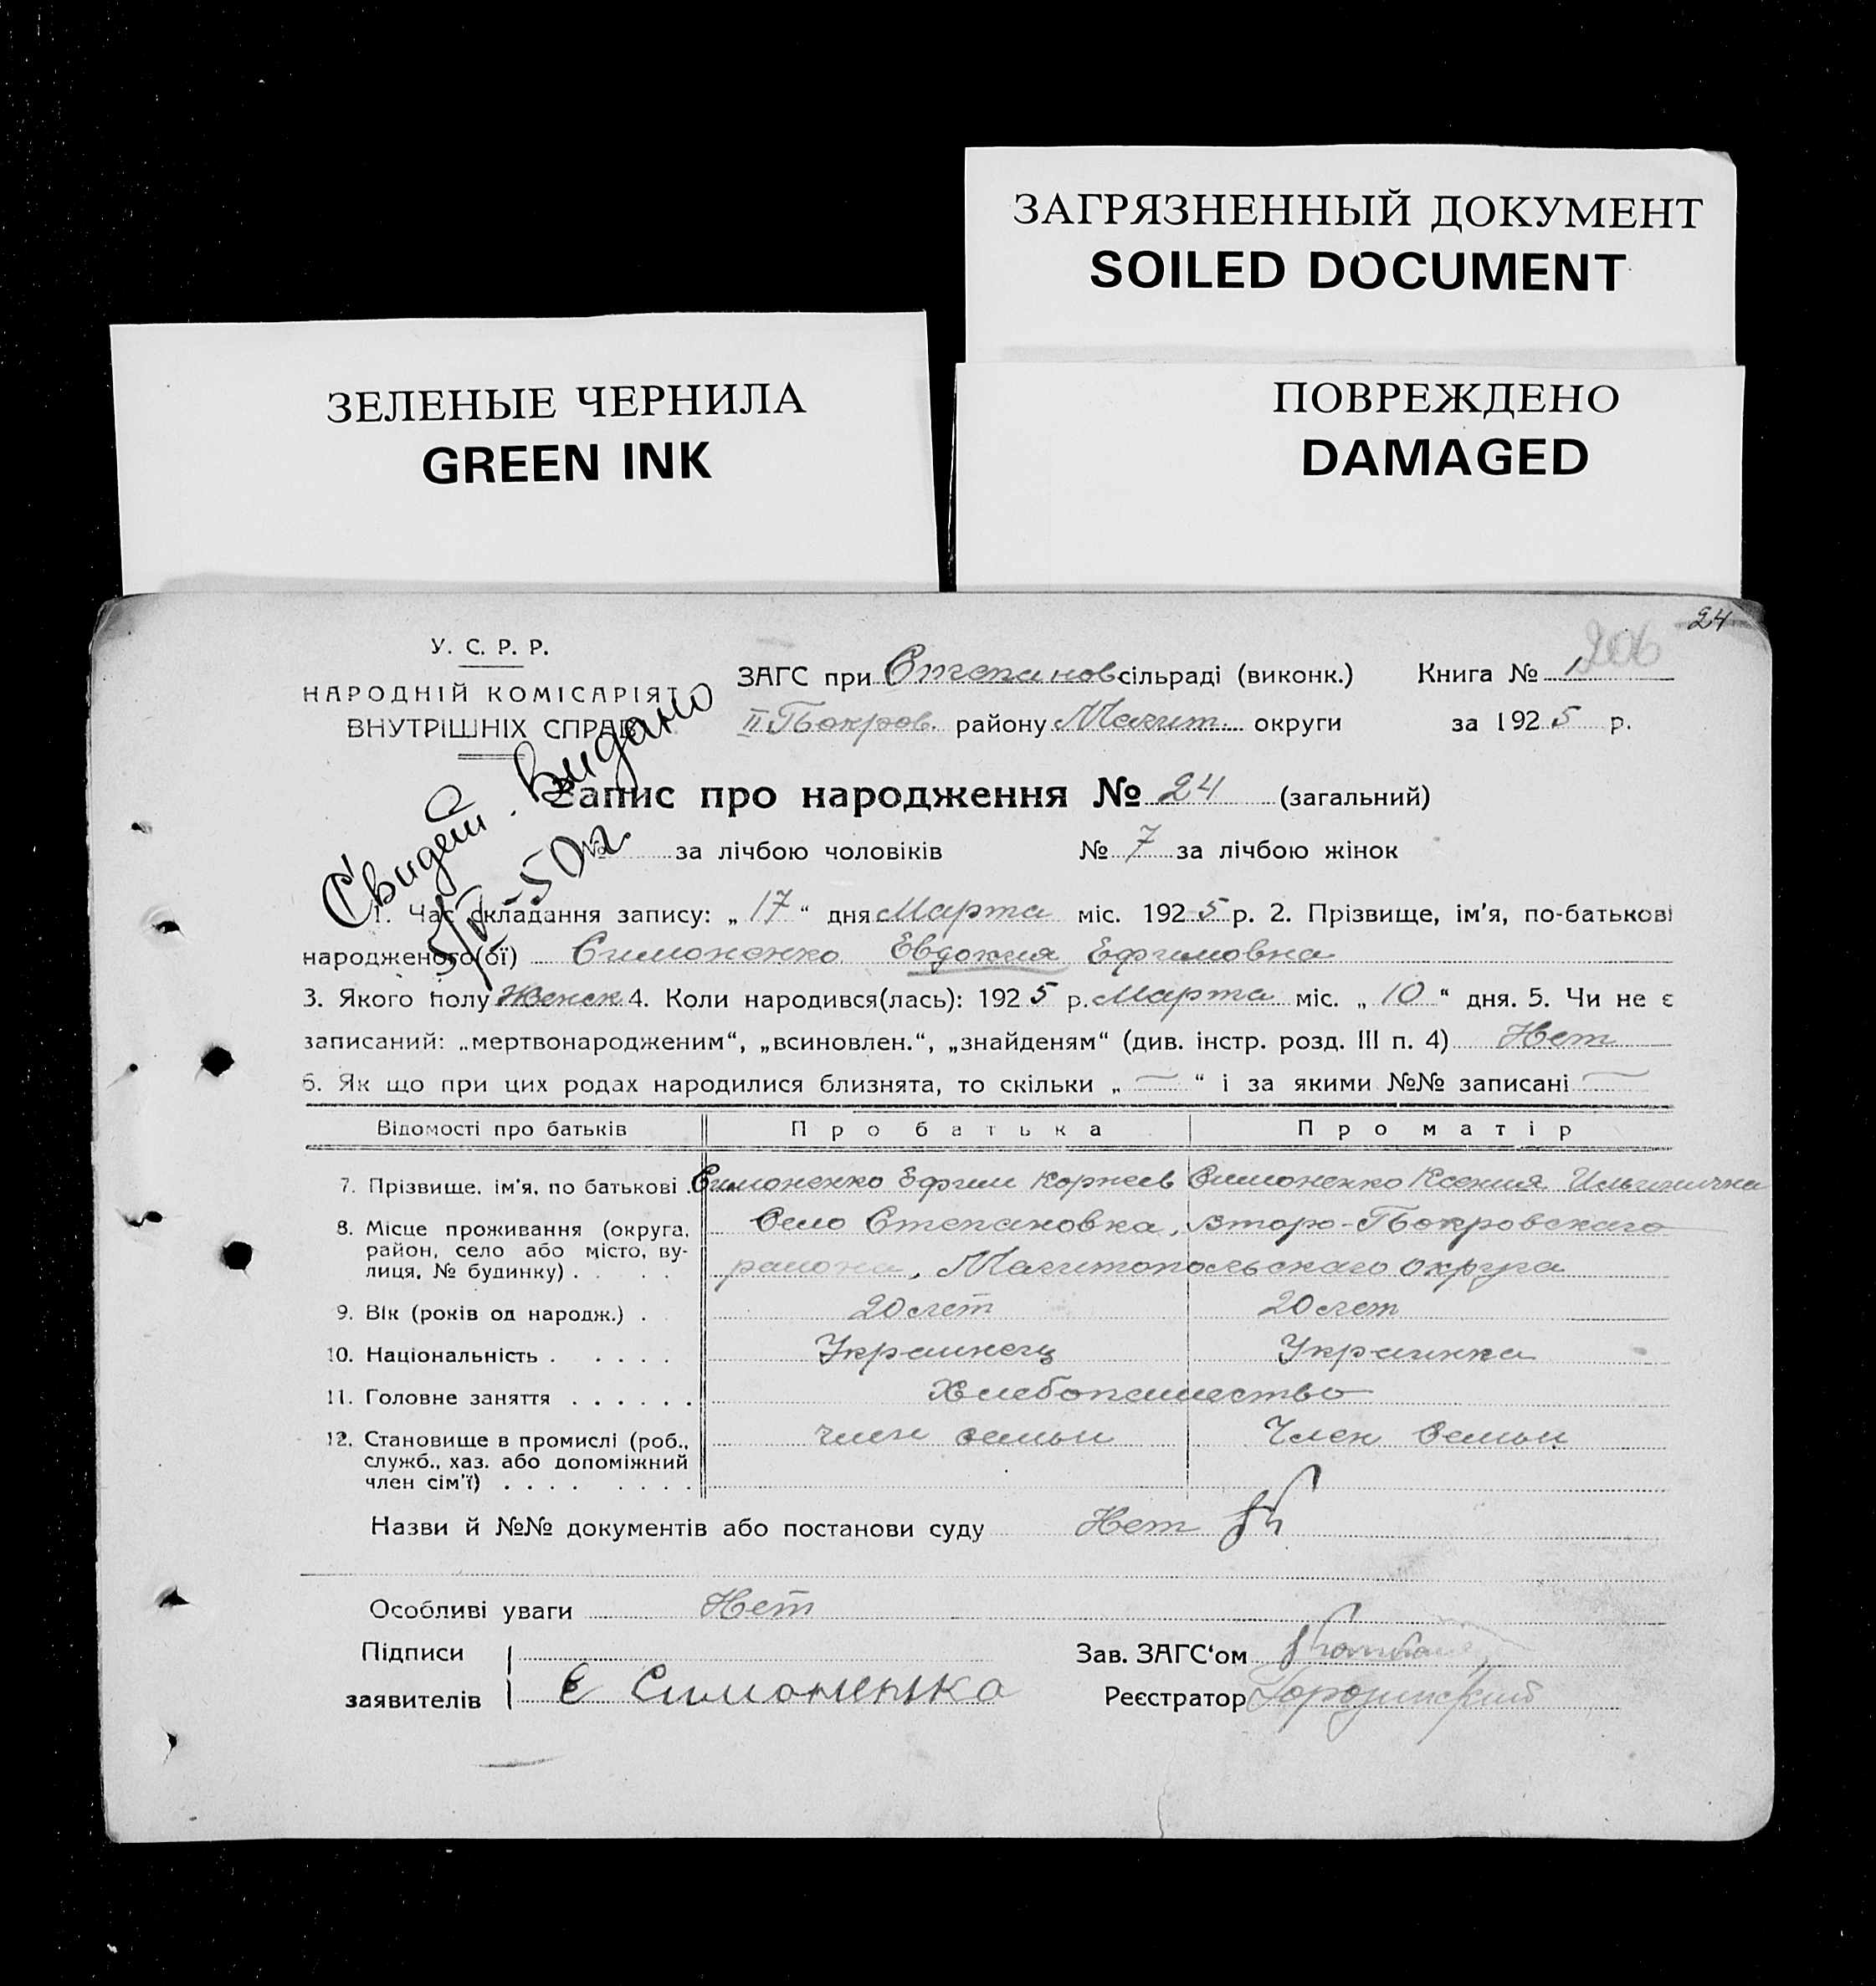 ЗАГРЯЗНЕННЫЙ ДОКУМЕНТ
SOILED DOCUMENT
ЗЕЛЕНЫЕ ЧЕРНИЛА
GREEN INK
ПОВРЕЖДЕНО
DAMAGED
24
206
У. С. Р. Р.
НАРОДНІЙ КОМІСАРІЯТ
ВНУТРІШНІХ СПРАВ
ЗАГС при Степанов сільраді (виконк.) Книга № 1
II Покров. району Мелит. округи за 1925 р.
Свидет. видано
50 г.
Запис про народження № 24 (загальний)
№ за лічбою чоловіків № 7 за лічбою жінок
1. Час складання запису: „17“ дня Марта міс. 1925 р. 2. Прізвище, ім'я, по-батькові
народженого(ої) Симоненко Евдокия Ефимовна
3. Якого полу Женск 4. Коли народився(лась): 1925 р. Марта міс. „10“ дня. 5. Чи не є
записаний: „мертвонародженим“, „всиновлен.“, „знайденям“ (див. інстр. розд. III п. 4) Нет
6. Як що при цих родах народилися близнята, то скільки „—“ і за якими №№ записані —
Відомості про батьків Про батька Про матір
7. Прізвище, ім'я, по батькові . Симоненко Ефим Корнеев Симоненко Ксения Ильинична
8. Місце проживання (округа, район, село або місто, ву-лиця, № будинку) . . . . Село Степановка, Второ-Покровскаго
района, Мелитопольскаго округа
9. Вік (років од народж.) . 20 лет 20 лет
10. Національність . . . . . Украинец Украинка
11. Головне заняття . . . . . . Хлебопашество
12. Становище в промислі (роб., служб., хаз. або допоміжний член сім'ї) . . . . . . . . член семьи Член Семьи
Назви й №№ документів або постанови суду Нет
Особливі уваги Нет
Підписи
заявителів Е Симоненко
Зав. ЗАГС‘ом
Реєстратор